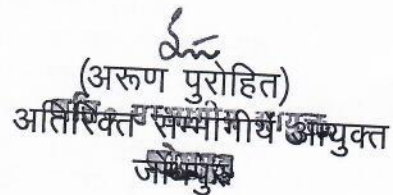 (अरूण पुरोहित)
अतिरिक्त सम्भागीय आयुक्त
जोधपुर